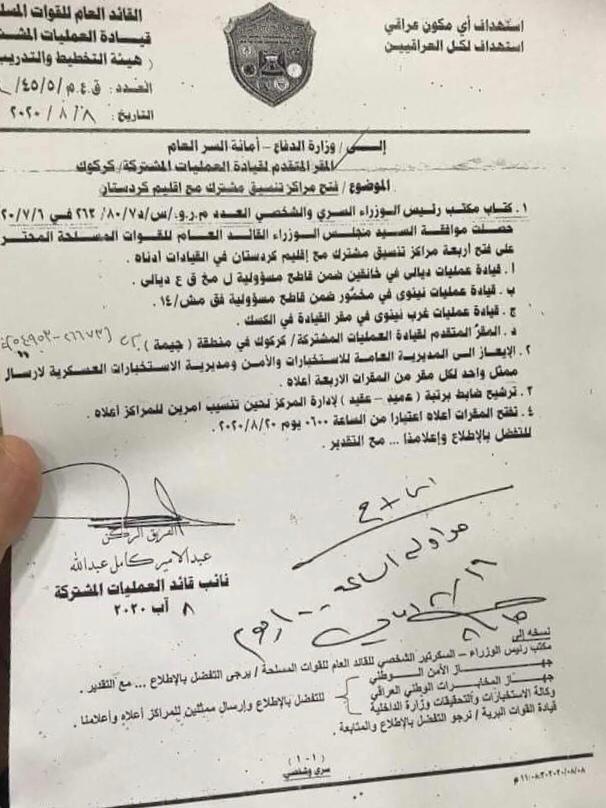 القائد العام للقوات المسلحة
قيادة العمليات المشتركة
( هيئة التخطيط والتدريب
العدد: ق.ع.م/٤٥/٥/
التاريخ: ٨ / ٨ / ٢٠٢٠
استهداف أي مكون عراقي
استهداف لكل العراقيين
إلى / وزارة الدفاع - أمانة السر العام
المقر المتقدم لقيادة العمليات المشتركة/ كركوك
الموضوع / فتح مراكز تنسيق مشترك مع إقليم كردستان
١. كتاب مكتب رئيس الوزراء السري والشخصي العدد م.ر.و/س/د٨٠/٧/ ٢٦٢ في ٢٠/٧/٦
حصلت موافقة السيد مجلس الوزراء القائد العام للقوات المسلحة المحتر
على فتح أربعة مراكز تنسيق مشترك مع إقليم كردستان في القيادات ادناه .
أ . قيادة عمليات ديالى في خانقين ضمن قاطع مسؤولية ل مخ ق ع ديالى .
ب . قيادة عمليات نينوى في مخمور ضمن قاطع مسؤولية فق مش/١٤ .
ج . قيادة عمليات غرب نينوى في مقر القيادة في الكسك .
د . المقر المتقدم لقيادة العمليات المشتركة/ كركوك في منطقة ( جيمة )
٢. الإيعاز الى المديرية العامة للاستخبارات والأمن ومديرية الاستخبارات العسكرية لارسال
ممثل واحد لكل مقر من المقرات الاربعة أعلاه .
٣. ترشيح ضابط برتبة ( عميد - عقيد ) لإدارة المركز لحين تنسيب امرين للمراكز أعلاه .
٤. تفتح المقرات أعلاه اعتبارا من الساعة ٠٦٠٠ يوم ٢٠٢٠/٨/٢٠ .
للتفضل بالإطلاع وإعلامنا ... مع التقدير .
الفريق الركن
عبدالامير كامل عبدالله
نائب قائد العمليات المشتركة
٨ آب ٢٠٢٠
نسخه إلى
مكتب رئيس الوزراء - السكرتير الشخصي للقائد العام للقوات المسلحة / يرجى التفضل بالإطلاع ... مع التقدير .
جهـــاز الأمن الـــوطني
جهـاز المخابرات الوطني العراقي
وكالة الاستخبارات والتحقيقات وزارة الداخلية
للتفضل بالإطلاع وإرسال ممثلين للمراكز أعلاه وأعلامنا .
قيادة القوات البرية / نرجو التفضل بالإطلاع والمتابعة .
(١-١)
سري وشخصي